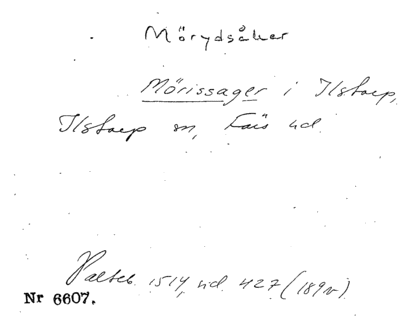 Mörydsåker
Mörissager i Ilstorp,
Ilstorp sn, Färs hd
Palteb. 1514, nd 427 (189v)
Nr 6607.